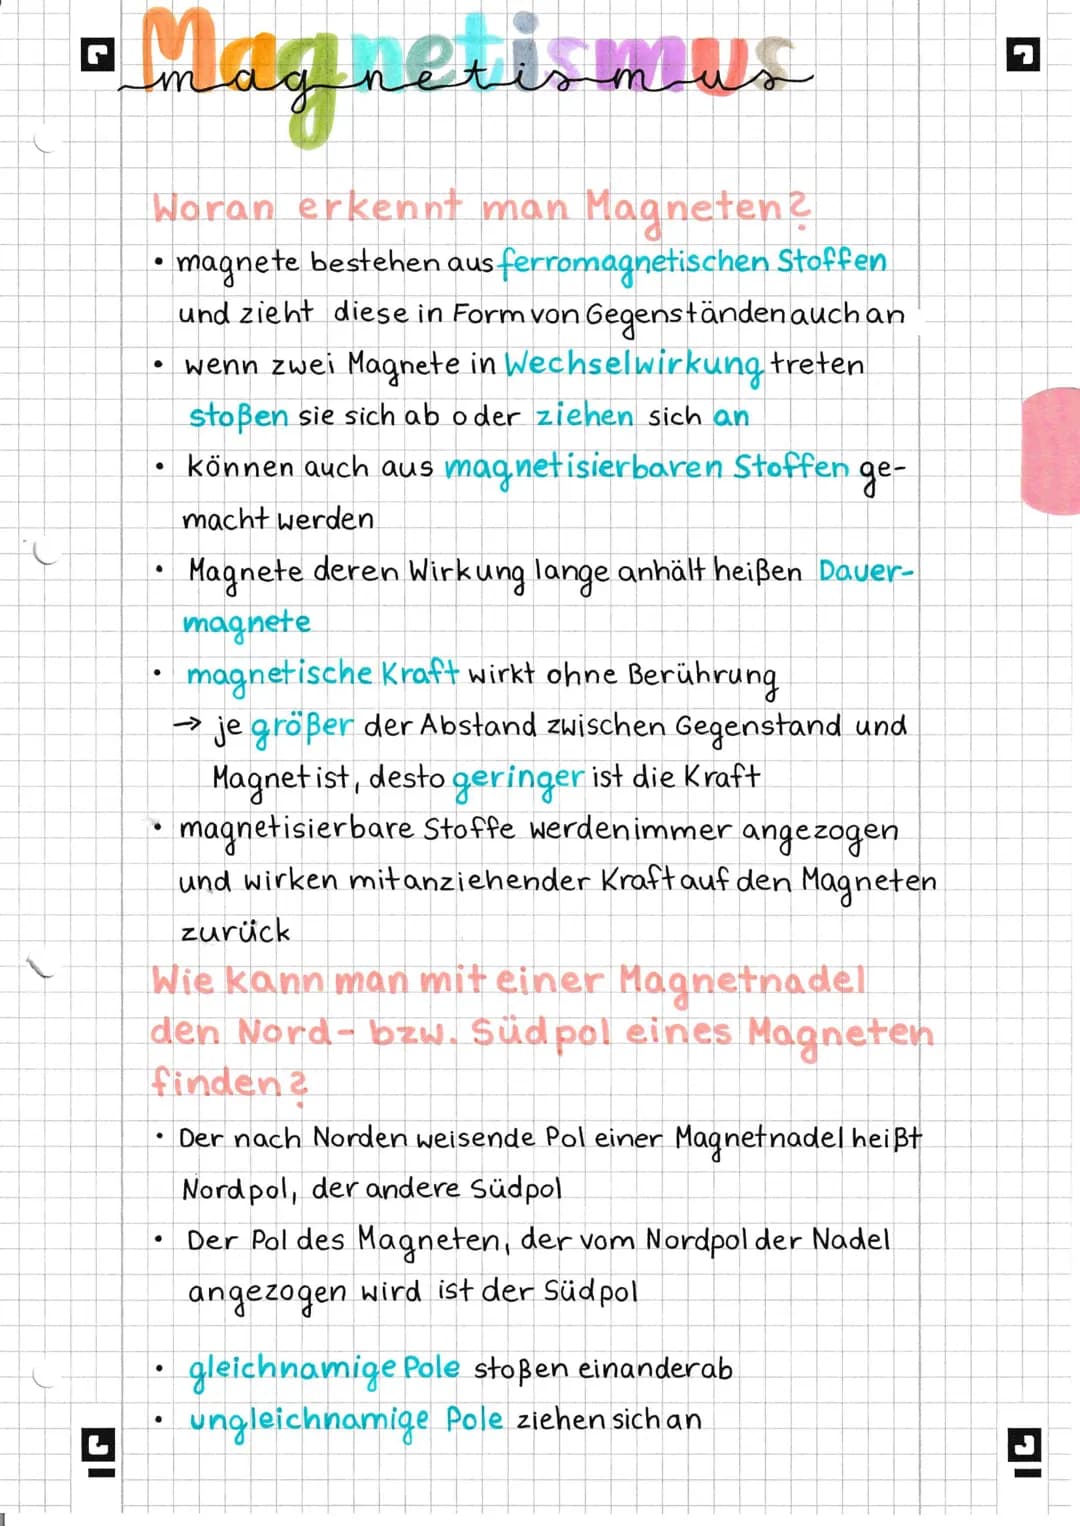 Magnetismus
magnetismus
Woran erkennt man Magneten?
• magnete bestehen aus ferromagnetischen Stoffen
und zieht diese in Form von Gegenständen auch an
• wenn zwei Magnete in Wechselwirkung treten
stoßen sie sich ab oder ziehen sich an
• können auch aus magnetisierbaren Stoffen ge-
macht werden
• Magnete deren Wirkung lange anhält heißen Dauer-
magnete
• magnetische Kraft wirkt ohne Berührung
→ je größer der Abstand zwischen Gegenstand und
Magnet ist, desto geringer ist die Kraft
• magnetisierbare Stoffe werden immer angezogen
und wirken mit anziehender Kraft auf den Magneten
zurück
Wie kann man mit einer Magnetnadel
den Nord- bzw. Südpol eines Magneten
finden?
• Der nach Norden weisende Pol einer Magnetnadel heißt
Nordpol, der andere Südpol
• Der Pol des Magneten, der vom Nordpol der Nadel
angezogen wird ist der Südpol
• gleichnamige Pole stoßen einander ab
• ungleichnamige Pole ziehen sich an